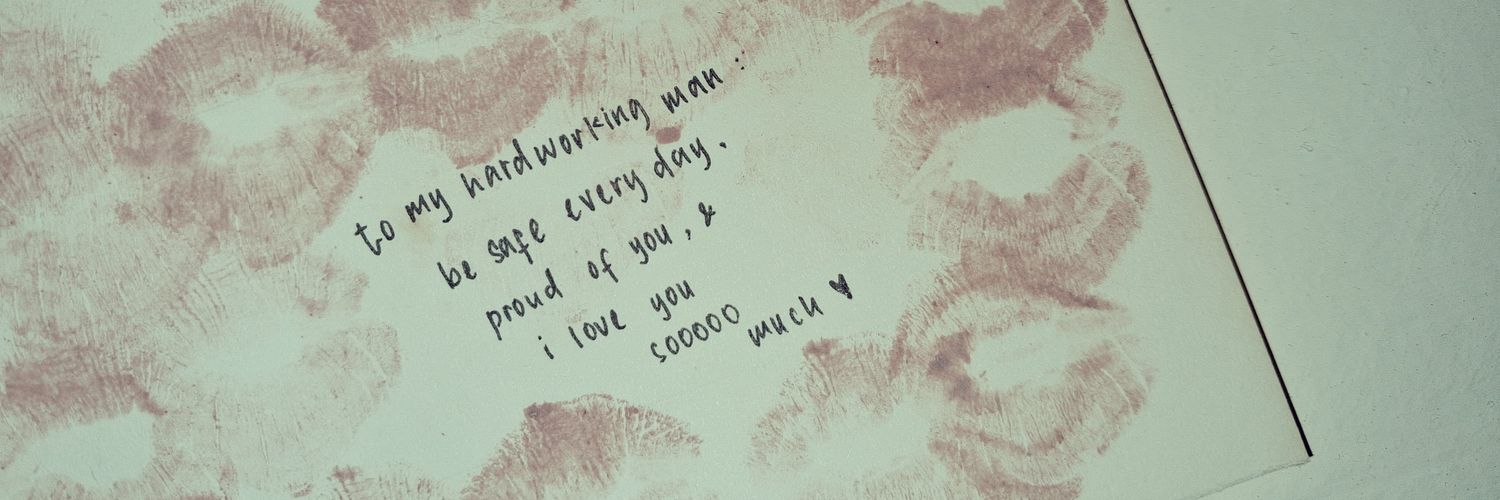 to my hardworking man :
be safe every day.
proud of you, &
i love you
sooooo much ♥